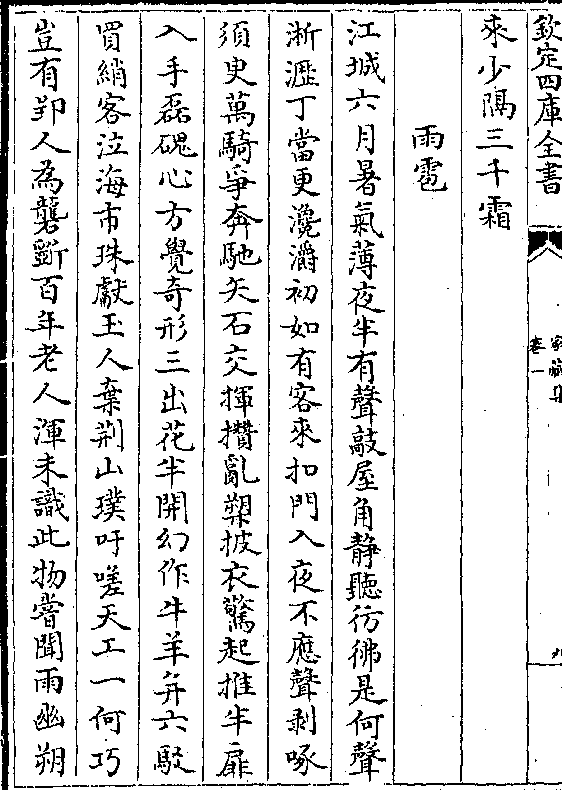 欽定四庫全書
家藏集
卷一
九
來少隔三千霜
雨雹
江城六月暑氣薄夜半有聲敲屋角静聽彷彿是何聲
淅瀝丁當更瀺灂初如有客來扣門入夜不應聲剥啄
須臾萬騎爭奔馳矢石交揮攢亂槊披衣驚起推半扉
入手磊磈心方覺竒形三出花半開幻作牛羊弁六駁
買綃客泣海市珠獻玉人棄荆山璞吁嗟天工一何巧
豈有郢人為礱斵百年老人渾未識此物嘗聞雨幽朔